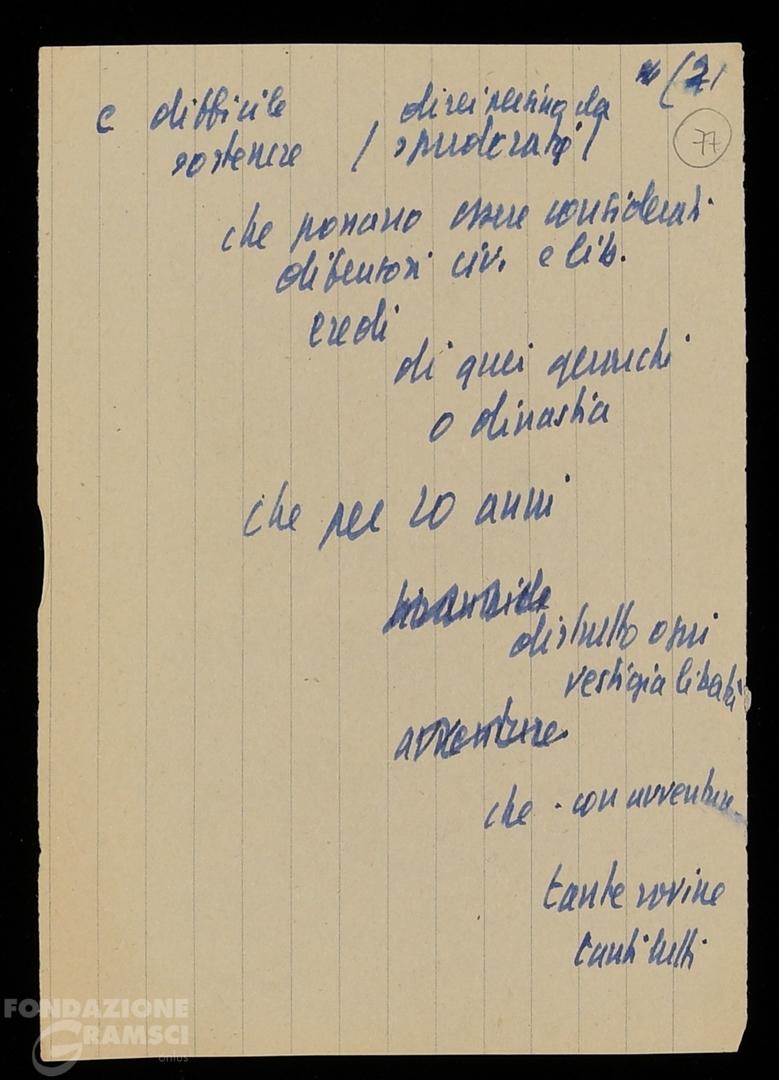 (2)
77
e difficile
sostenere / spudorata /
che possano essere considerati
difensori civ. e lib.
eredi
di quei
o dinastia
che per 20 anni
distrutto ogni
vestigia libertà
avventure
che - con avventure
tante rovine
tanti lutti
FONDAZIONE
GRAMSCI
onlus